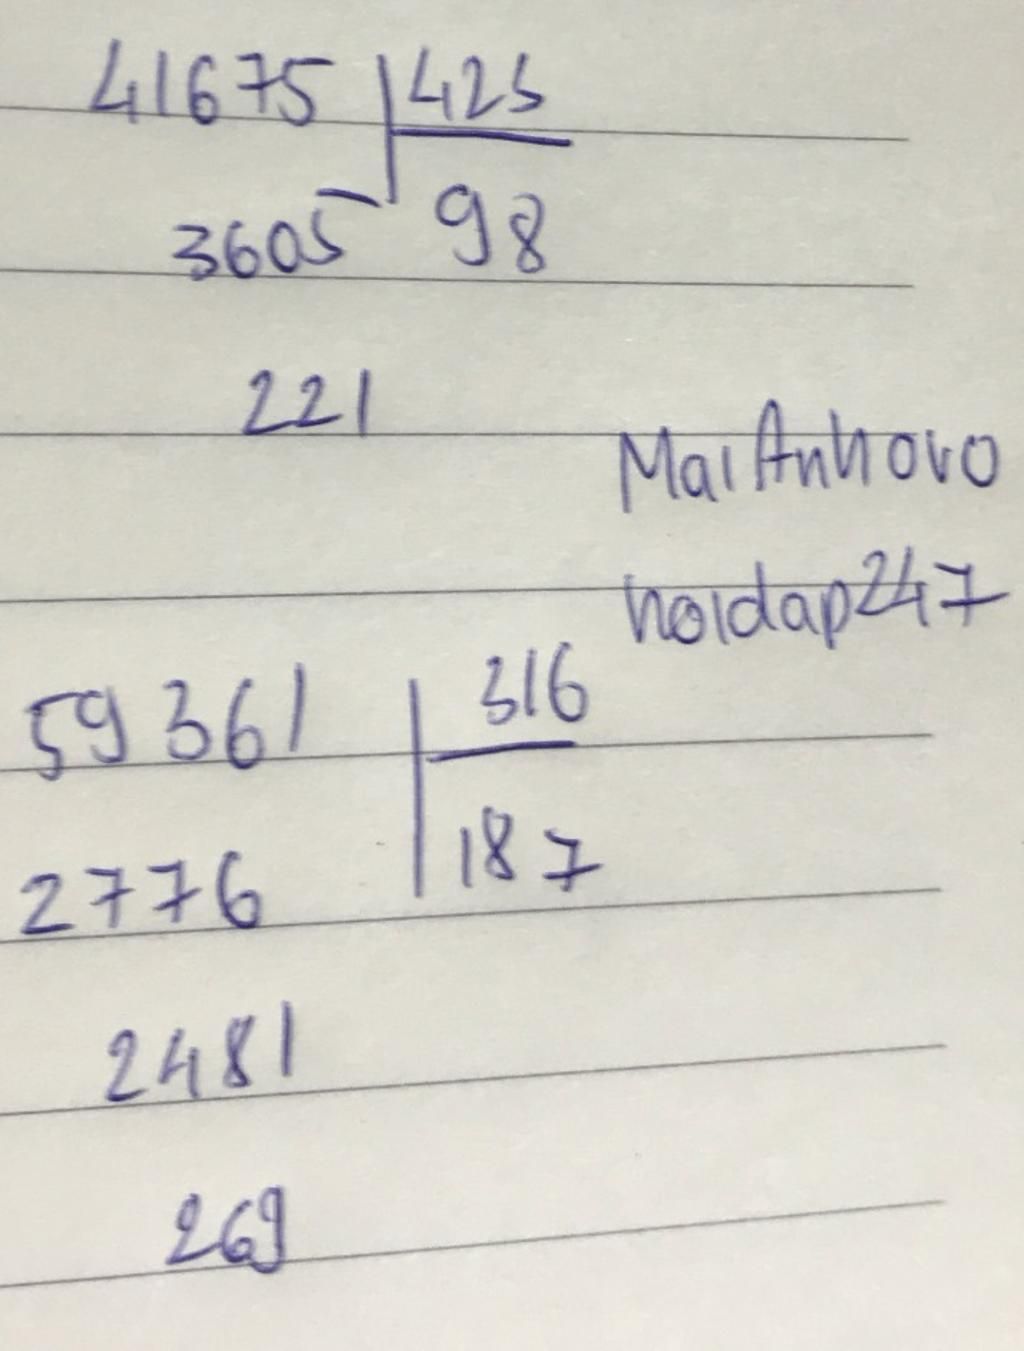 41675 425
3605 98
221
MaiAnhovo
hoidap247
59361 316
2776 187
2481
269